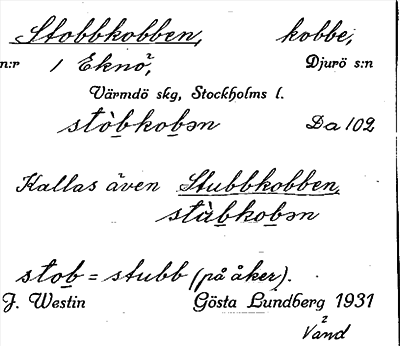 Stobbkobben, kobbe;
n:r 1 Eknö², Djurö s:n
Värmdö skg, Stockholms l.
stòbkobən Da 102
Kallas även Stubbkobben,
stùbkobən
stob = stubb (på åker).
J. Westin Gösta Lundberg 1931
2
Vänd